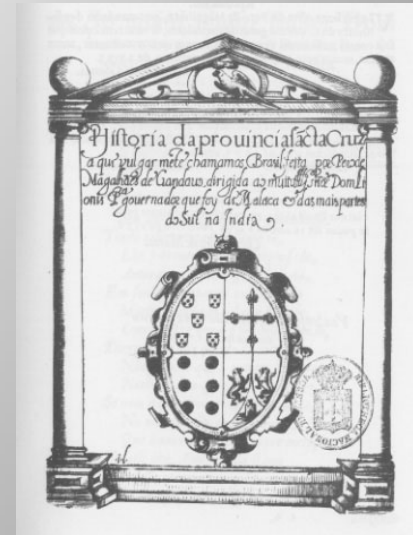 Historia da prouincia sãcta Cruz
a que vulgarmẽte chamamos Brasil feita por Pero de
Magalhães de Gandauo, dirigida ao muito Illsre Dom Li
onis Pra gouernador que foy de Malaca & das mais partes
do Sul na India